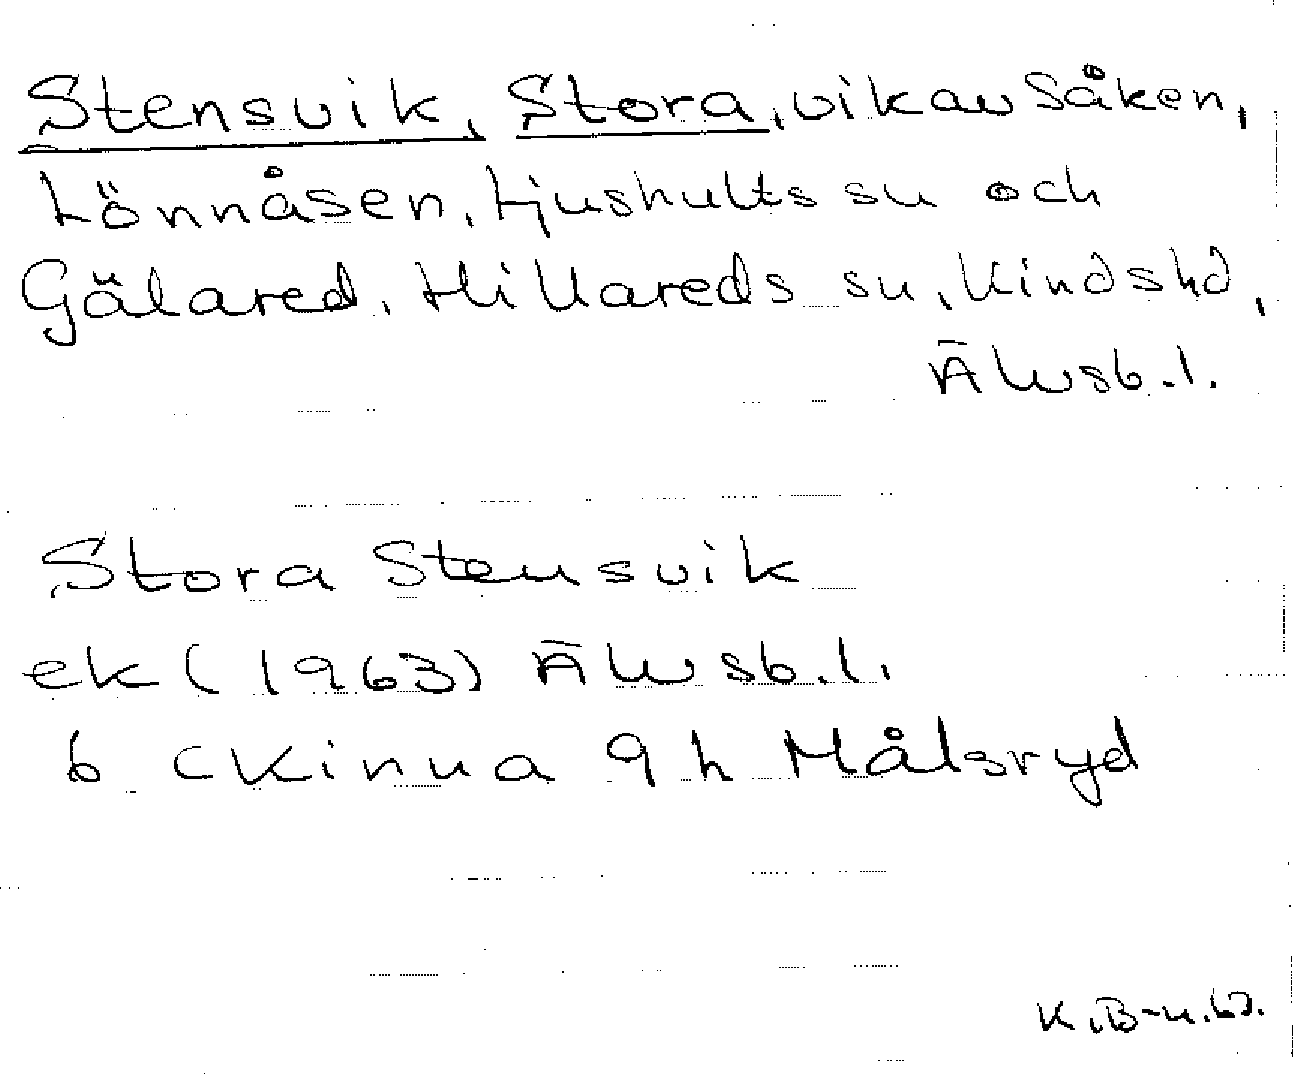 Stensvik, Stora, vik av Såken,
Lönnåsen, Ljushults sn och
Gälared, Hillareds sn, Kinds hd,
Älvsb. l.
Stora Stensvik
ek (1963) Älvsb. l.
6 C Kinna 9 h Målsryd
K. B-n.